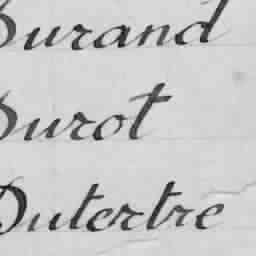 Durand
Durot
Dutertre